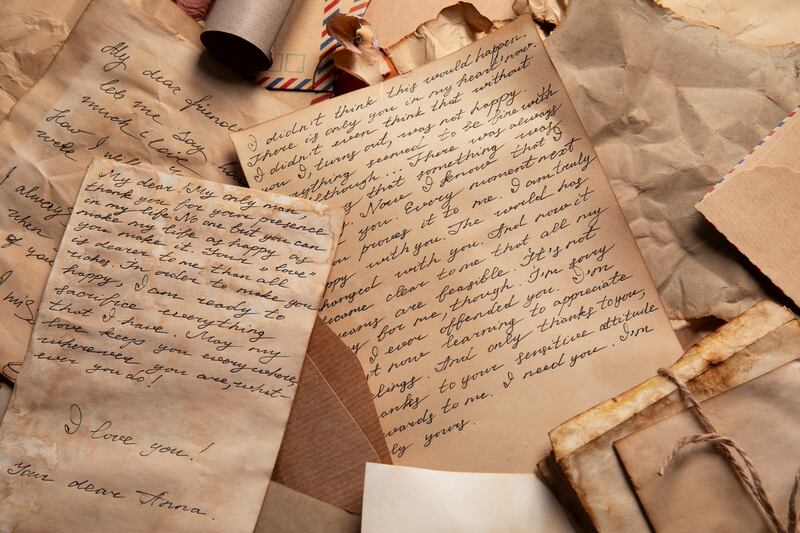 My dear friend
let me say
much i love
How I
week
I always
when
of you
I
My dear. My only man,
thank you for your presence
in my life. No one but you can
make my life as happy as
you make it. Your »love«
is dearer to me than all
riches. In order to make you
happy, I am ready to
sacrifice everything
that I have. May my
love keeps you everywhere,
wherever you are, what-
ever you do!
I love you!
Your dear Anna.
I didn't think this would happen.
There is only you in my heart now.
I didn't even think that without
you I, turns out, was not happy.
rything seemed to be fine with
though... There was always
g that something was
Now I know that I
you. Every moment next
proves it to me. I am truly
ppy with you. The world has
hanged with you. And now it
ecame clear to me that all my
eams are feasible. It's not
y for me, though. I'm sorry
I ever offended you. I'm
t now learning to appreciate
elings. And only thanks to you,
anks to your sensitive attitude
wards to me. I need you. I'm
ly yours.